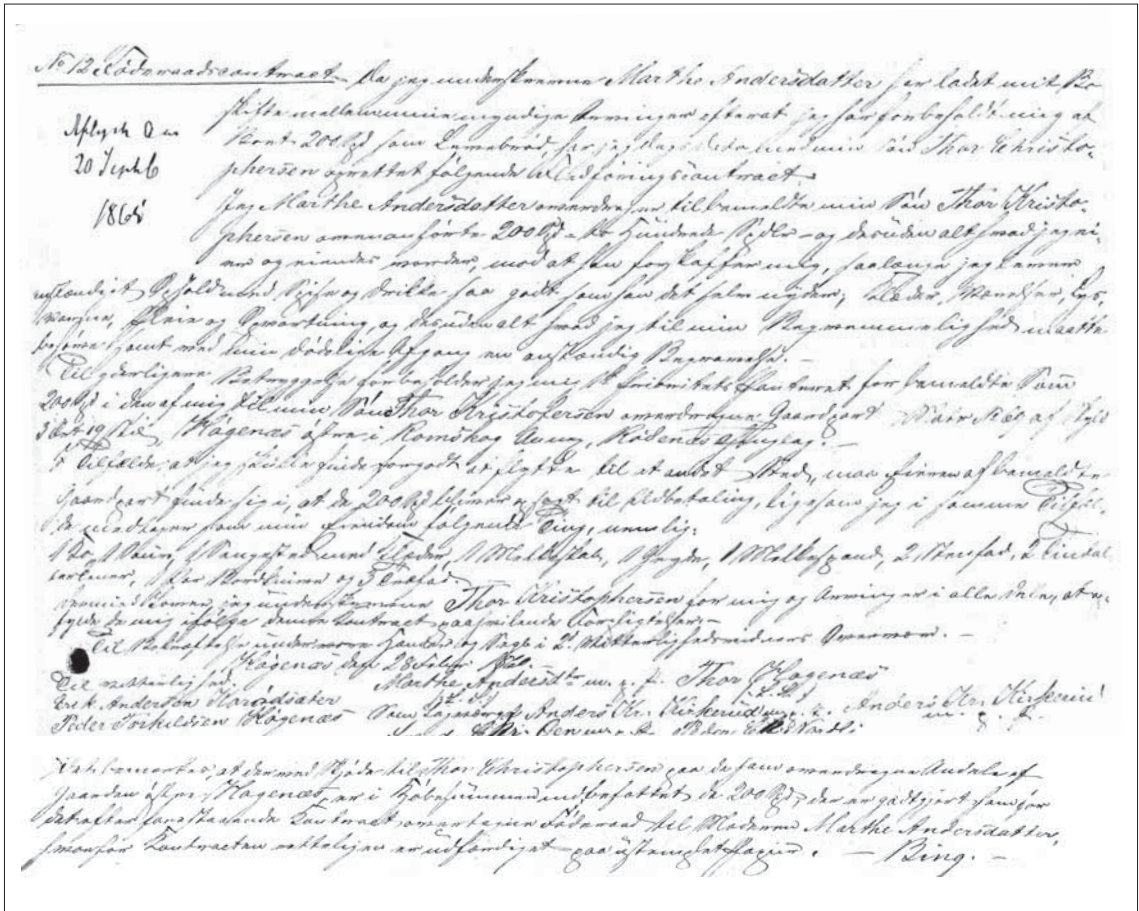 No 12 Föderaadscontract. Da jeg underskrevne Marthe Andersdatter har ladet mit Bo
skifte mellem mine myndige Arvinger efterat jeg har forbeholdt mig
200 Spd som Levebröd, har jeg dags dato med min Sön Thor Christo-
phersen oprettet fölgende contract.
Aflyst den
20 Septb
1865
Jeg Marthe Andersdatter overdrager til bemeldte min Sön Thor Kristo-
phersen ovenanförte 200 Spd - to Hundrede Spdlr - og desuden alt hvad jeg ei-
er og eiendes vorder, mod at han forskaffer mig, saalænge jeg lever
anstændigt Ophold med Spise og Drikke saa godt som han det selv nyder, Klæder, Værelser, Lys,
Varme, Pleie og Opvartning, og desuden alt hvad jeg til min Beqvemmelighed maatte
behöve samt ved min dödelige Afgang en anstændig Begravelse. -
Til yderligere Betryggelse forbeholder jeg mig Prioritets Panteret for bemeldte Sum
200 Spd i den af mig til min Sön Thor Kristofersen overdragne Gaardpart
Hagenæs östre i Romskog Annex, Rödenæs Thinglag. -
I Tilfælde, at jeg skulle finde forgodt at flytte til et andet Sted, maa Eieren af bemeldte
Gaardpart finde sig i, at de 200 Spd bliver opsagt til Udbetaling, ligesom jeg i samme Tilfæl-
de medtager som min Eiendom fölgende Ting, nemlig:
1 Ko, 1 Sau, 1 Sengested med Klæder, 1 1 Gryde, 1 Melkespand, 2 Steenfad, 2
1 Par og 3 Træfad.
Hermed lover jeg underskrevne Thor Kristophersen for mig og Arvinger i alle Dele, at op-
fylde de mig ifölge denne Contract paahvilende Forpligtelser. -
Til Bekræftelse under vore Hænder og Segl i 2 Vitterlighedsvidners Overvær. -
Hagenæs den 28
Til vitterlighed: Marthe Andersdtr m. p. p. Thor Hagenæs
Erik Anderson (L. S.) (L. S.)
Peder Torkildsen Hagenæs Som Laugværge Anders Kr. Kirkerud m. p. p. Anders Kr. Kirkerud
m. p. p.
Det bemærkes, at der ved Skjöde til Thor Christophersen paa de ham overdragne Andele af
Gaarden östre Hagenæs, er i Kjöbesummen indbefattet de 200 Spd, der er godtgjort ham for
det efter foranstaaende Contract overtagne Föderaad til Moderen Marthe Andersdatter,
hvorfor Contracten rettelig er udfærdiget paa ustemplet Papir. - Bing. -